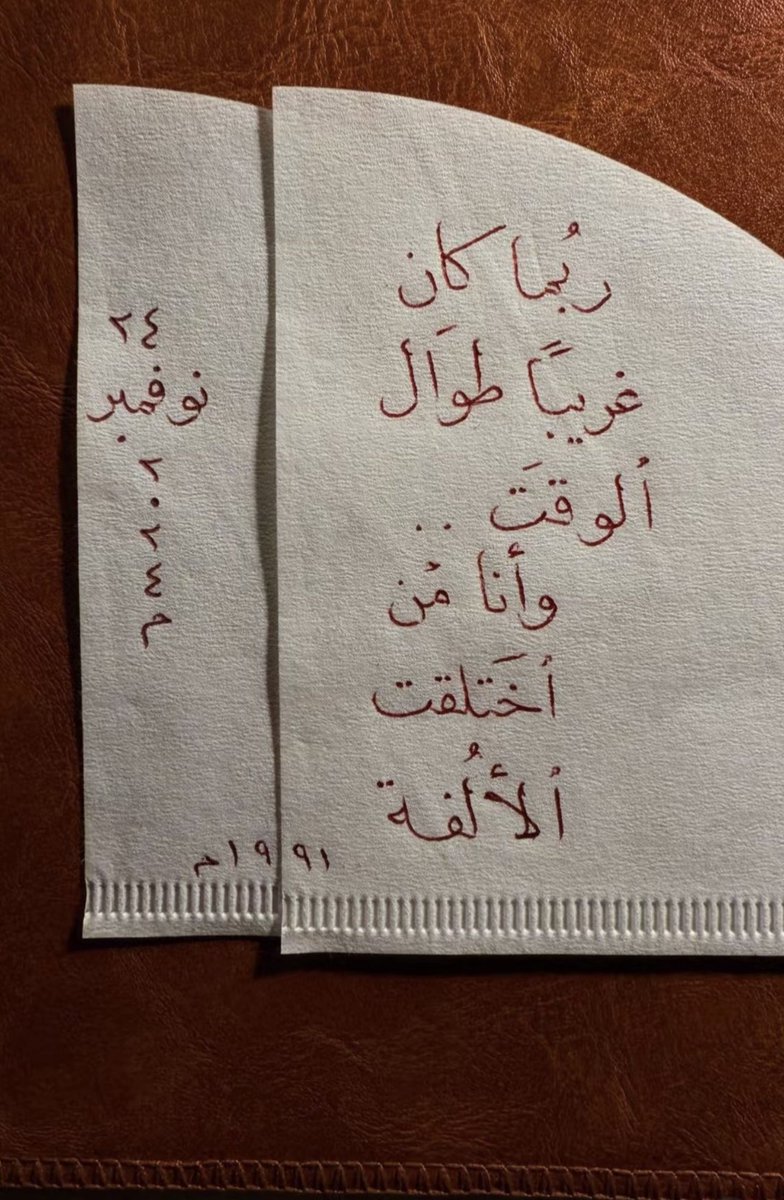 رُبما كان
غريبًا طوَال
ألوقتَ ..
وأنا مُن
أختَلقت
ألأُلفة
٢٤
نوفمبر
٢٠٢٤م
١٩٩١م